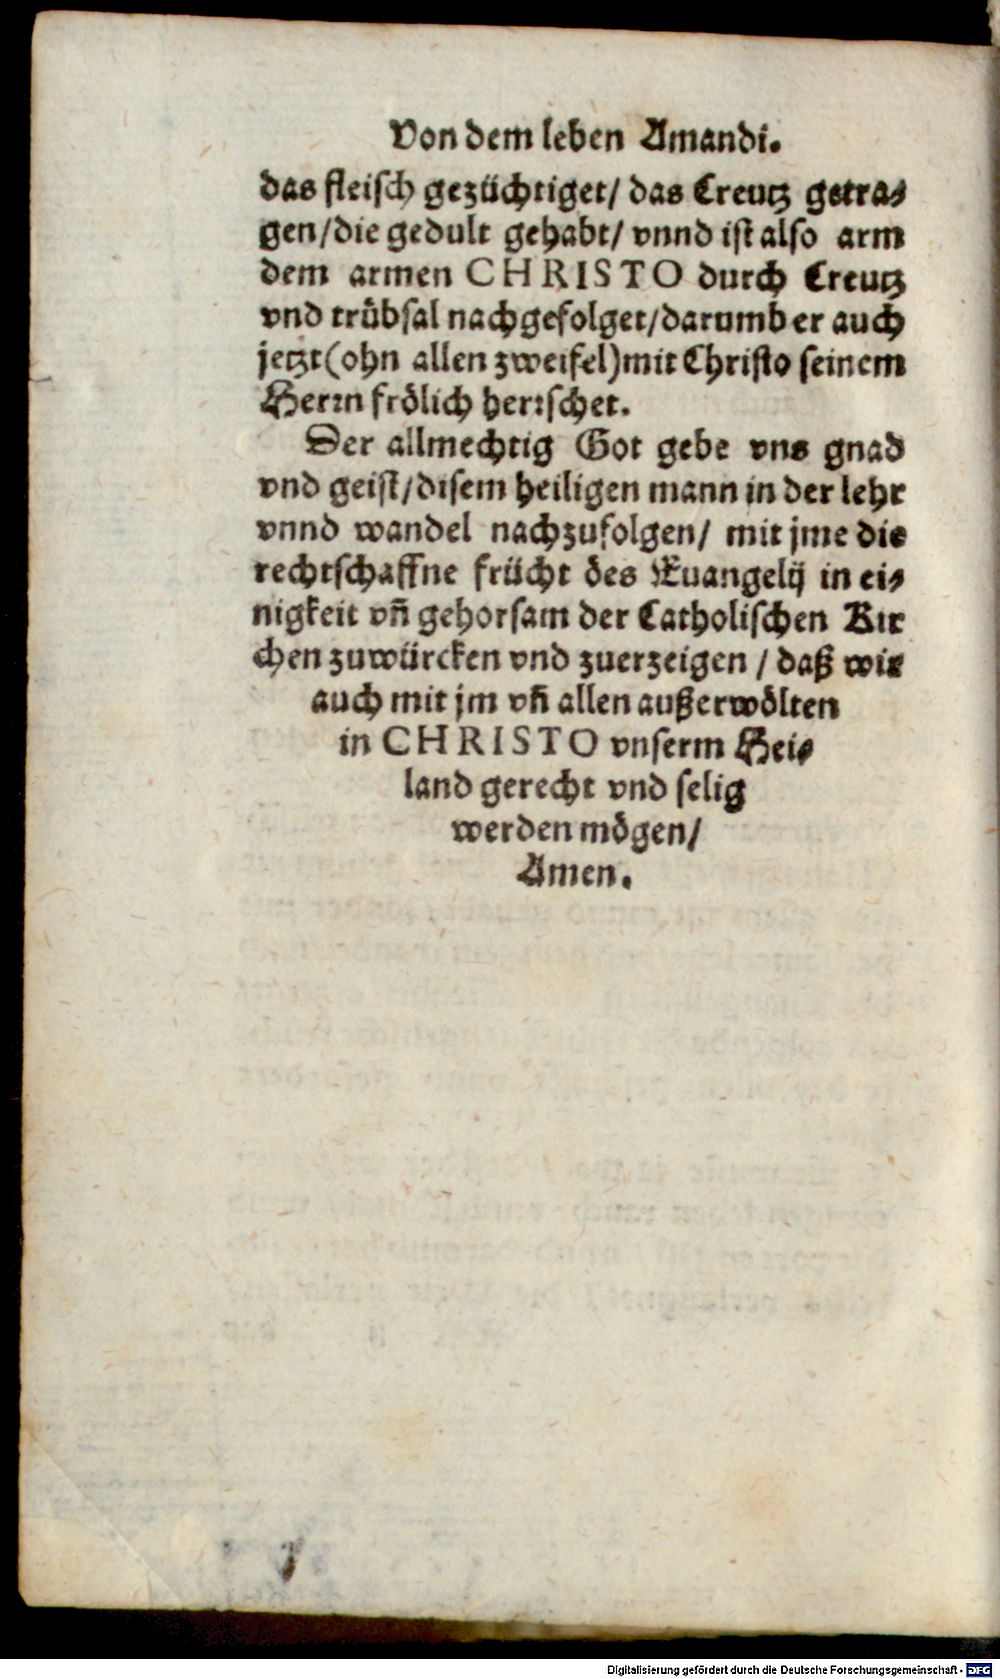 Von dem leben Amandi.
das fleisch gezüchtiget/ das Creutz getra⸗
gen/die gedult gehabt/ vnnd ist also arm
dem armen CHRISTO durch Creutz
vnd trübsal nachgefolget/darumb er auch
jetzt(ohn allen zweifel)mit Christo seinem
Herrn frölich herrschet.
Der allmechtig Got gebe vns gnad
vnd geist/disem heiligen mann in der lehr
vnnd wandel nachzufolgen/ mit jme die
rechtschaffne frücht des Euangelij in ei⸗
nigkeit vñ gehorsam der Catholischen Kir
chen zuwürcken vnd zuerzeigen / daß wir
auch mit jm vñ allen außerwölten
in CHRISTO vnserm Hei⸗
land gerecht vnd selig
werden mögen/
Amen.
Digitalisierung gefördert durch die Deutsche Forschungsgemeinschaft - DFG